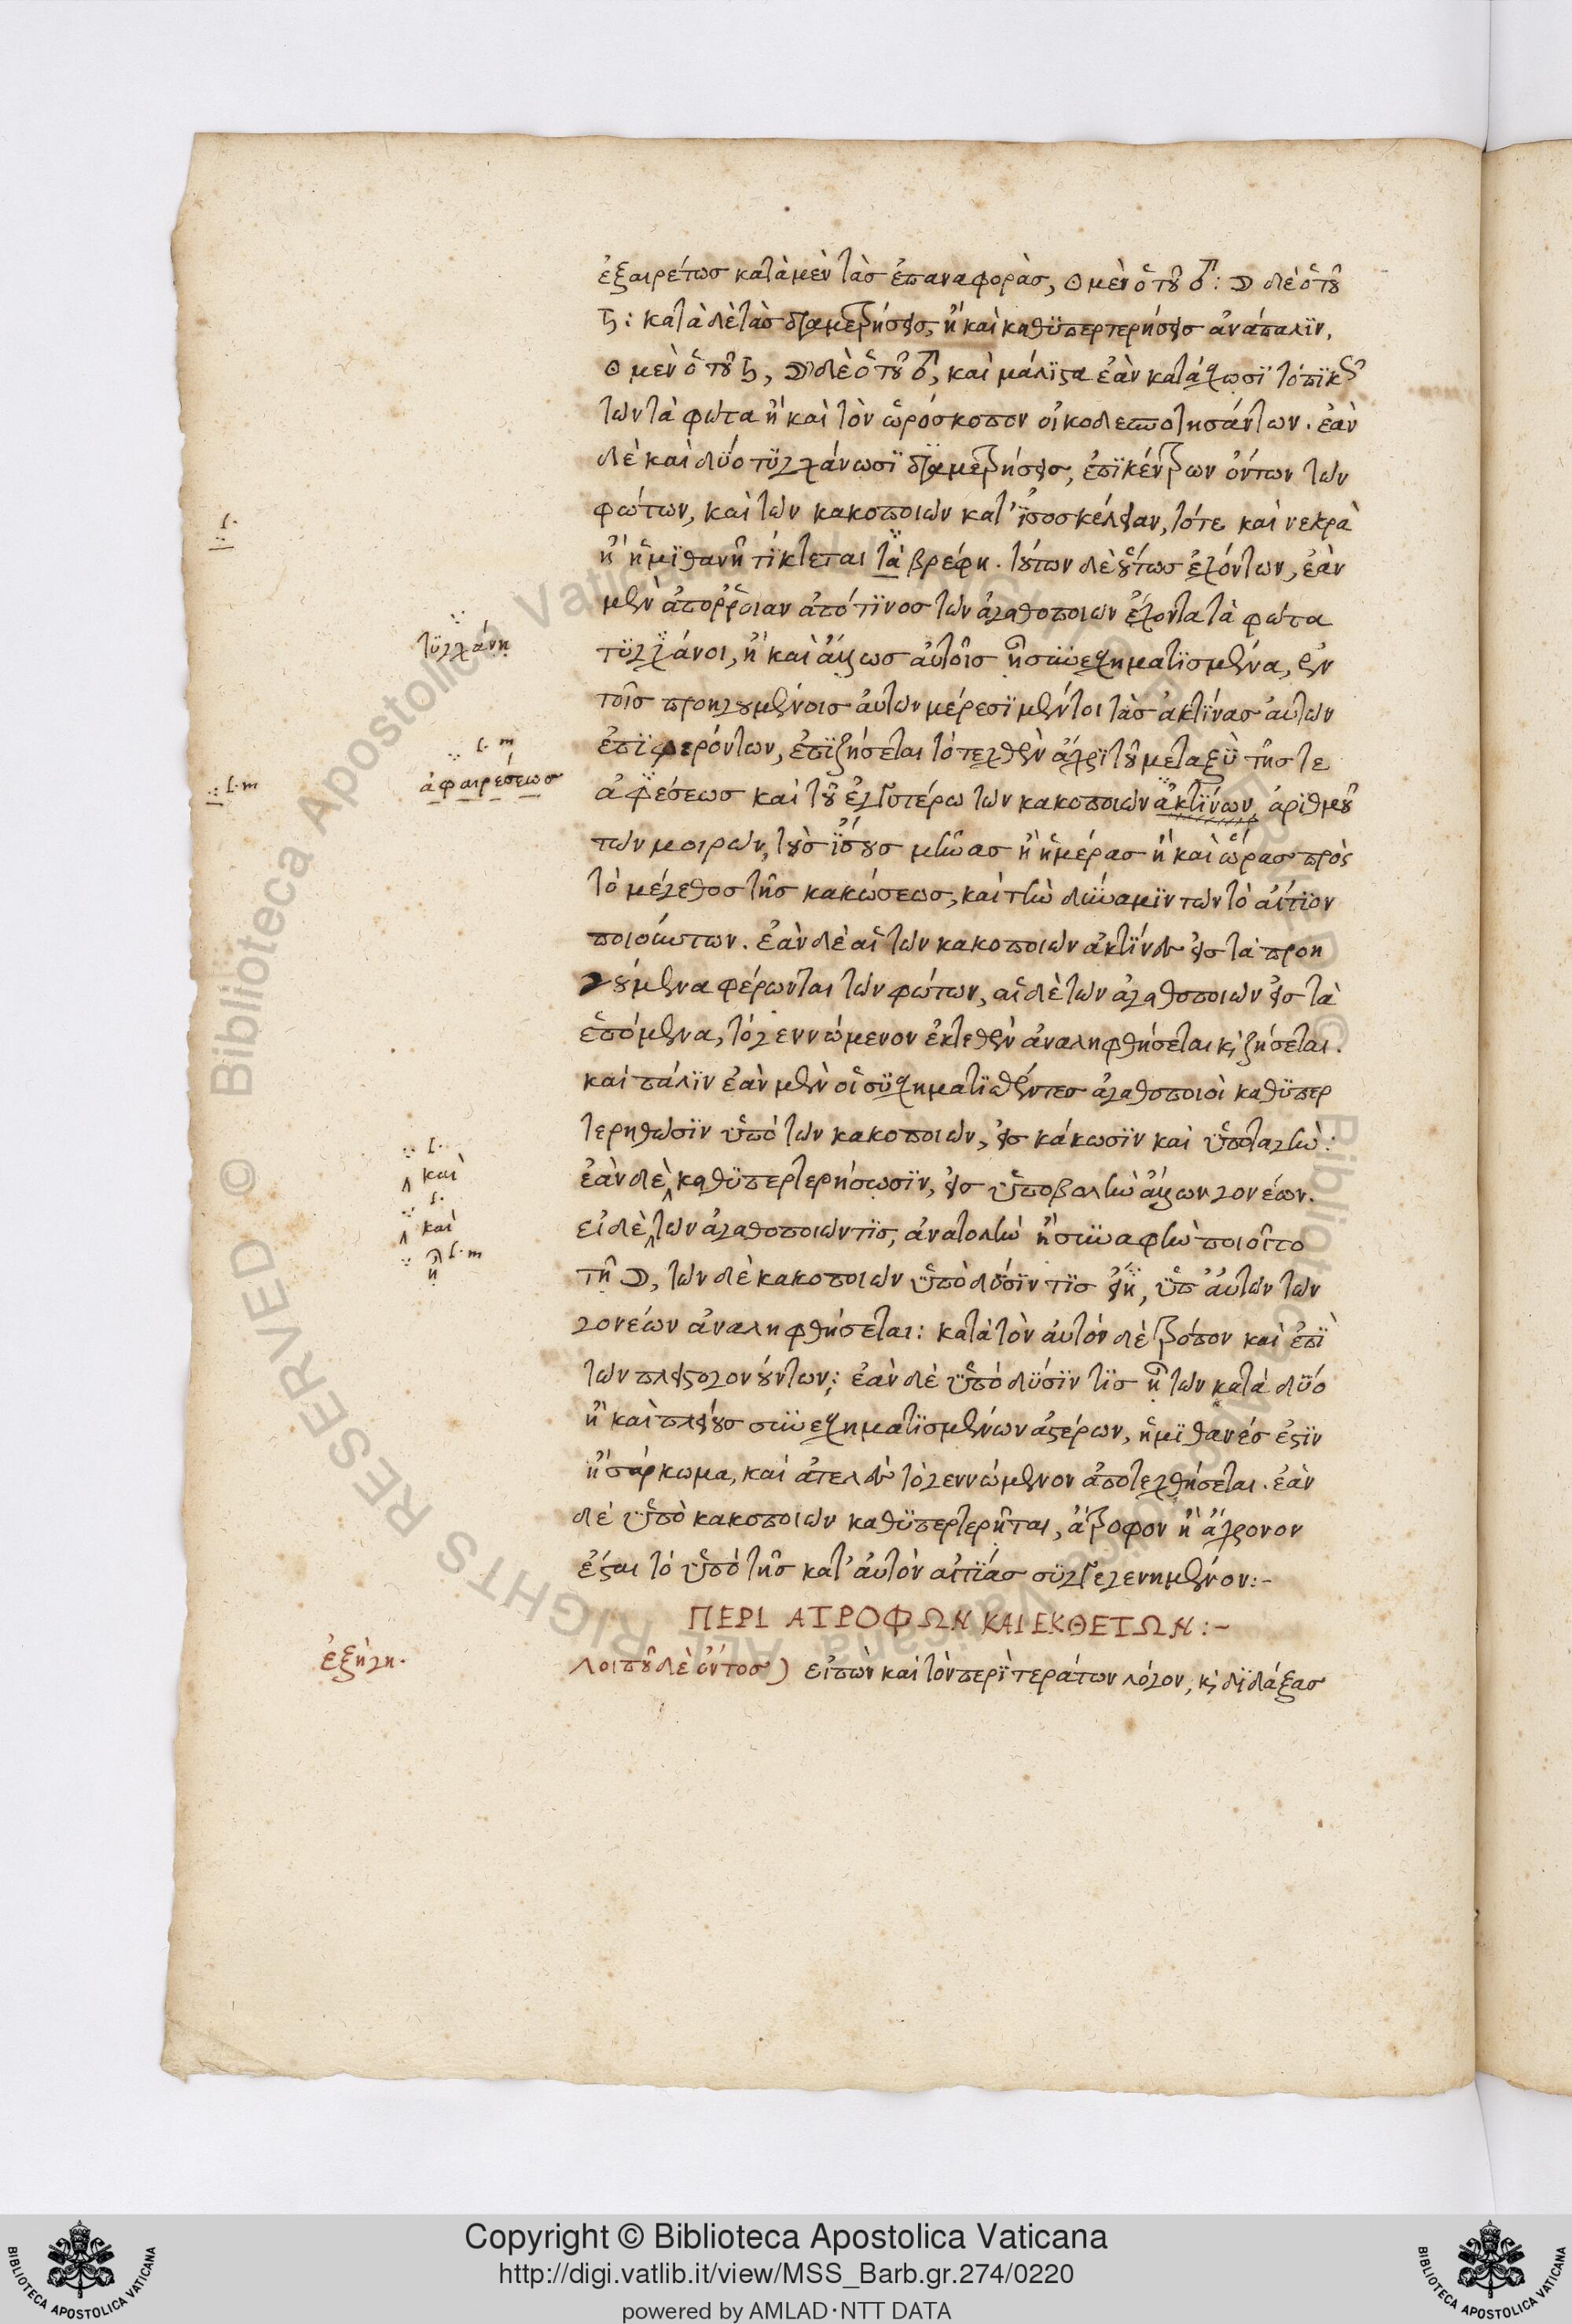 ἐξαιρέτωσ καταμὲν τὰσ ἐπαναφορὰσ, ☉ μὲν ὁ τοῦ ♂: ☽ δὲ ὁ τοῦ
♄: κατὰ δὲ τὰσ διαμετρήσεισ, ἢ καὶ καθϋπερτερήσεισ ἀνάπαλϊν,
☉ μὲν ὁ τοῦ ♄, ☽ δὲ ὁ τοῦ ♂, καὶ μάλϊστα ἐὰν κατάσχωσϊ τόπϊκῶσ
τῶν τὰ φῶτα ἢ καὶ τὸν ὡρόσκοπον οἰκοδεσποτησάντων. ἐὰν
δὲ καὶ δϋό τϋγχάνωσϊ διαμετρήσεισ, ἐπϊκέντρων ὄντων τῶν
φώτων, καὶ τῶν κακοποιῶν κατ' ἰσοσκέλειαν, τότε καὶ νεκρὰ
ἢ ἡμϊθανῆ τίκτεται τὰ βρέφη. τούτων δὲ οὕτωσ ἐχόντων, ἐὰν
μὲν ἀπορροιαν ἀπό τϊνοσ τῶν ἀγαθοποιῶν ἔχοντα τὰ φῶτα
τϋγχάνοι, ἢ καὶ ἄλλωσ αὐτοῖσ ἦ συνεσχηματϊσμένα, ἐν
τοῖσ προηγουμένοισ αὐτῶν μέρεσϊ μέντοι τὰσ ἀκτίνασ αὐτῶν
ἐπϊφερόντων, ἐπϊζήσεται τὸ τεχθὲν ἄχρϊ τοῦ μεταξϋ τῆσ τε
ἀφέσεωσ καὶ τοῦ ἐγγϋτέρω τῶν κακοποιῶν ἀκτίνων ἀρϊθμοῦ
τῶν μοιρῶν, τοὺσ ἴσουσ μῆνασ ἢ ἡμέρασ ἢ καὶ ὥρασ πρὸς
τὸ μέγεθοσ τῆσ κακώσεωσ, καὶ τὴν δύναμϊν τῶν τὸ αἴτϊον
ποιούντων. ἐὰν δὲ αἱ τῶν κακοποιῶν ἀκτῖνεσ εἰσ τὰ προη
γούμενα φέρωνται τῶν φώτων, αἱ δὲ τῶν ἀγαθοποιῶν εἰσ τὰ
ἑπόμενα, τὸ γεννώμενον ἐκτεθὲν ἀναληφθήσεται κ̀ ζήσεται.
καὶ πάλϊν ἐὰν μὲν οἱ σϋσχηματϊσθέντεσ ἀγαθοποιοὶ καθϋπερ
τερηθῶσϊν ὑπὸ τῶν κακοποιῶν, εἰσ κάκωσϊν καὶ ὑποταγὴν:
ἐὰν δὲ καθϋπερτερήσωσϊν, εἰσ ὑποβολὴν ἄλλων γονέων.
εἰ δὲ τῶν ἀγαθοποιῶν τϊσ, ἀνατολὴν ἢ συναφὴν ποιοῖτο
τῇ ☽, τῶν δὲ κακοποιῶν ὑπὸ δϋσϊν τϊσ εἴη, ὑπ' αὐτῶν τῶν
γονέων ἀναληφθήσεται: κατὰ τὸν αὐτὸν δὲ τρόπον καὶ ἐπϊ
τῶν πλειστογονούντων: ἐὰν δὲ ὑπὸ δϋσϊν τϊσ ἦ τῶν κατὰ δϋό
ἢ καὶ πλείουσ συνεσχηματϊσμένων ἀστέρων, ἡμϊθανέσ ἐστϊν
ἢ σάρκωμα, καὶ ἀτελὲσ τὸ γεννώμενον ἀποτεχθήσεται. ἐὰν
δὲ ὑπὸ κακοποιῶν καθϋπερτερῆται, ἄτροφον ἢ ἄχρονον
ἔσται τὸ ὑπὸ τῆσ κατ' αὐτὸν αἰτίασ σϋγγεγενημένον:-
ΠΕΡΙ ΑΤΡΟΦΩΝ ΚΑΙ ΕΚΘΕΤΩΝ:-
λοιποῦ δὲ ὄντοσ) εἰπὼν καὶ τὸν περὶ τεράτων λόγον, κ̀ δϊδάξασ
τϋγχάνη
l. m
ἀφαιρέσεωσ
l. m
l.
l.
καὶ
l.
καὶ
l. m
ἢ
ἐξήγη.
Copyright © Biblioteca Apostolica Vaticana
http://digi.vatlib.it/view/MSS_Barb.gr.274/0220
powered by AMLAD·NTT DATA
BIBLIOTECA APOSTOLICA VATICANA
BIBLIOTECA APOSTOLICA VATICANA